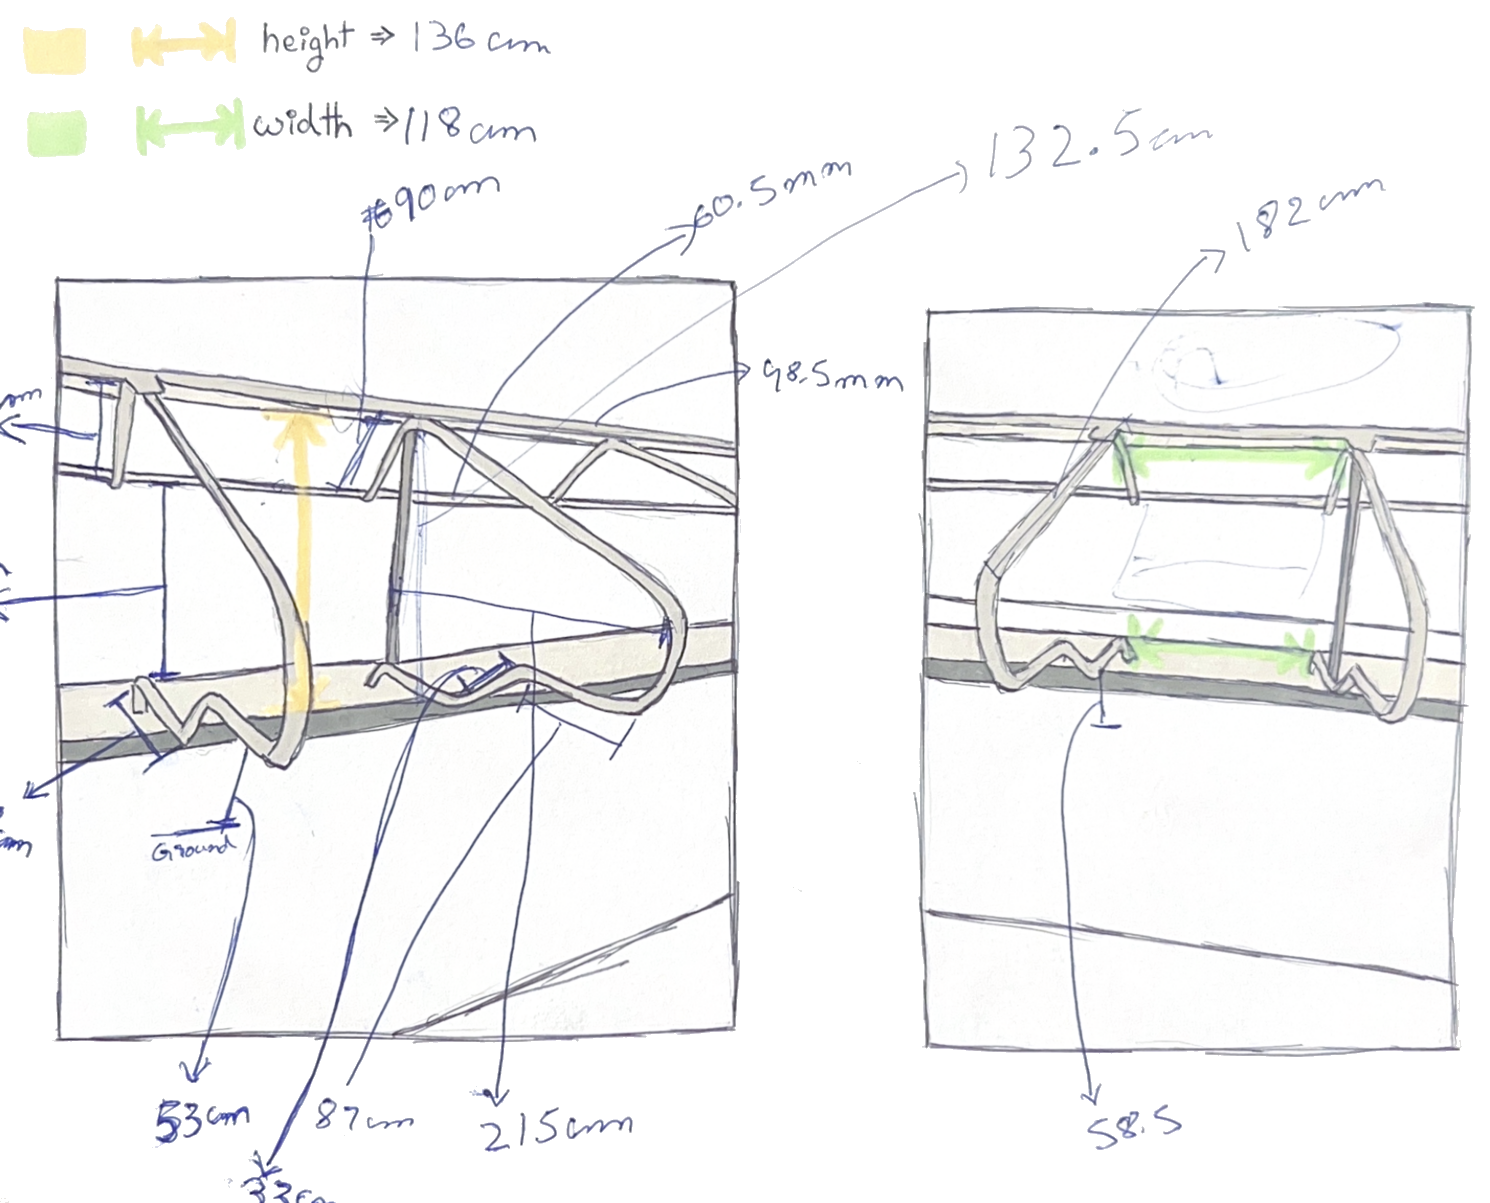 height ⇒ 136 cm
width ⇒ 118 cm
90cm
60.5mm
132.5cm
182cm
98.5mm
Ground
53cm
87cm
215cm
58.5
33cm